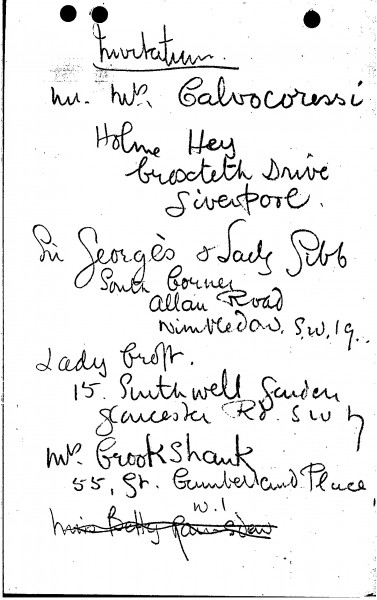 Invitation.
Mr. Mrs. Calvocoressi
Holme Hey
Croxteth Drive
Liverpool.
Sir George & Lady Gibb
South Corner
Allan Road
Wimbledon. S.W.19.
Lady Croft.
15. Southwell Garden
Gloucester Rd. SW7
Mrs. Crookshank
55, Gt. Cumberland Place
W.1
Miss Betty